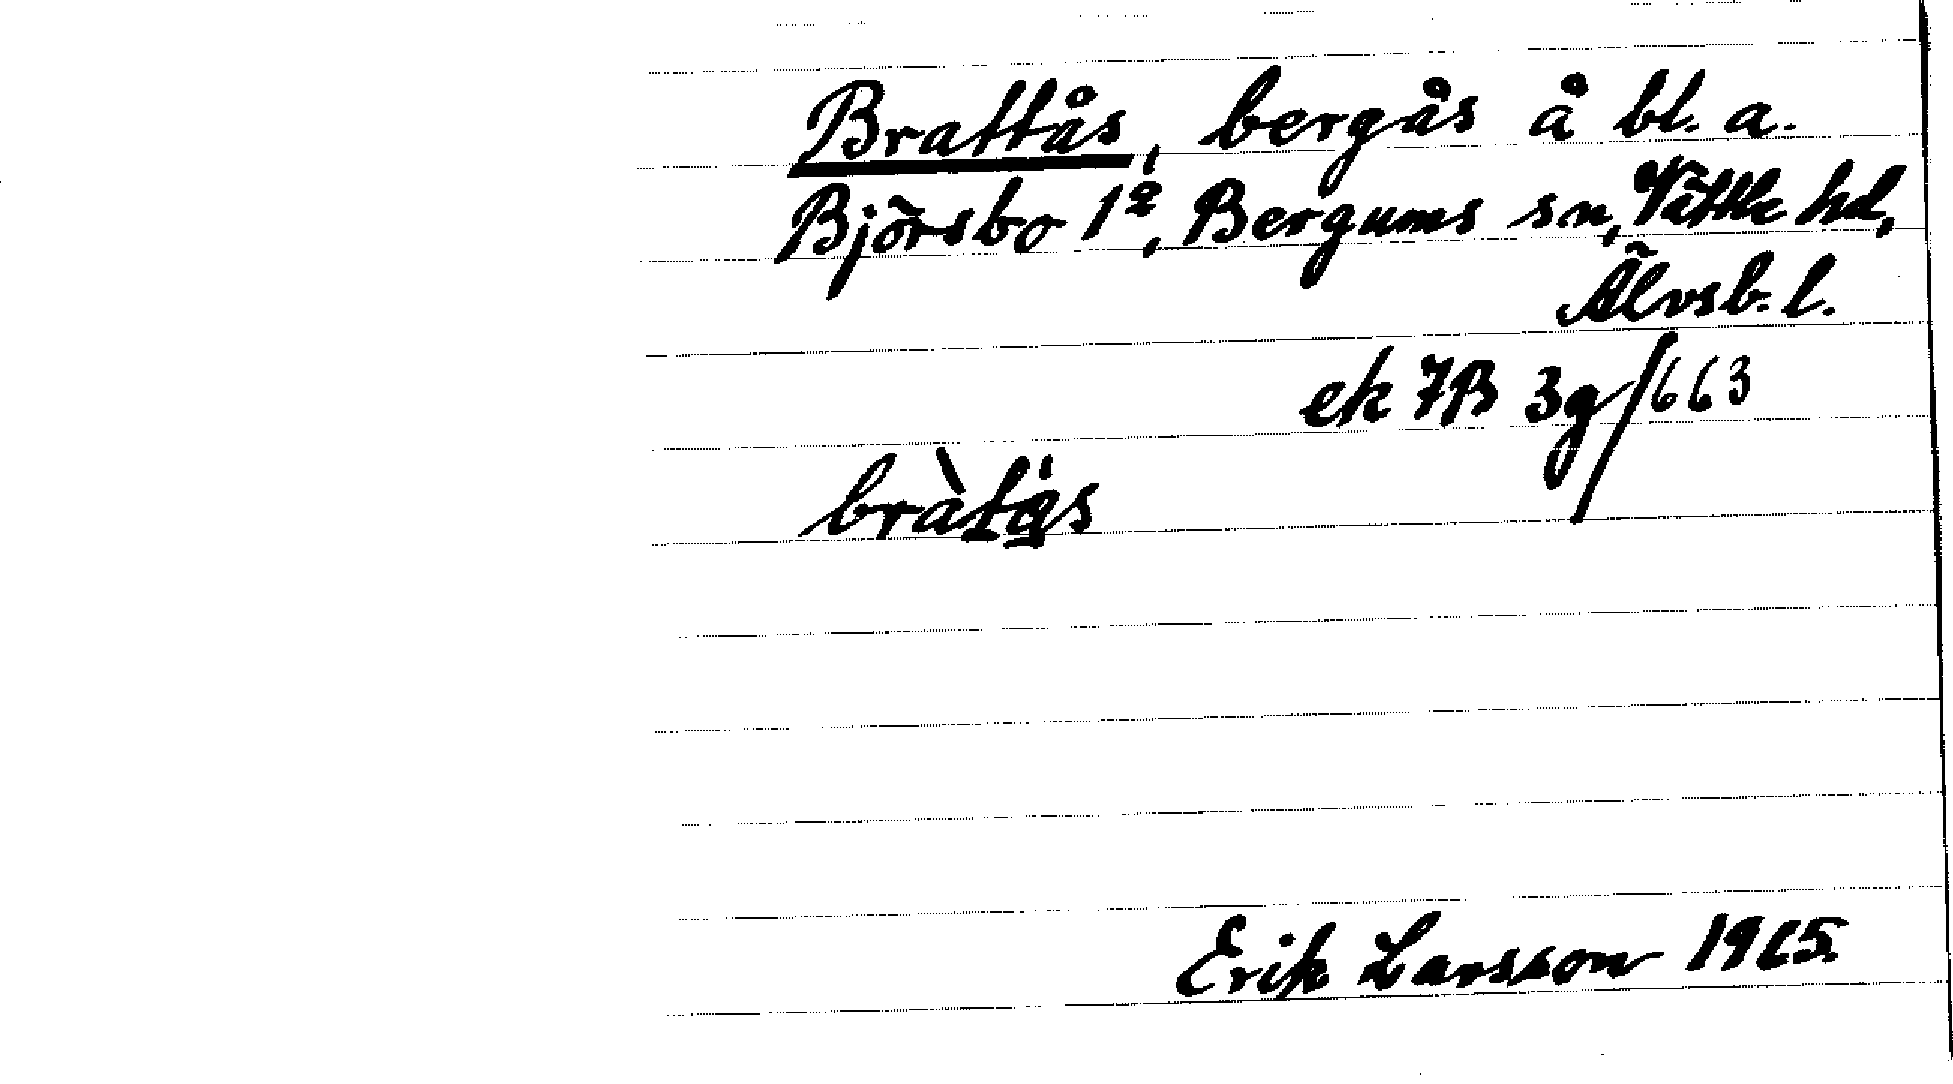 Brattås, bergås å bl. a.
Björsbo 1², Bergums sn, Vättle hd,
Älvsb. l.
ek 7B 3g/663
Erik Larsson 1965.